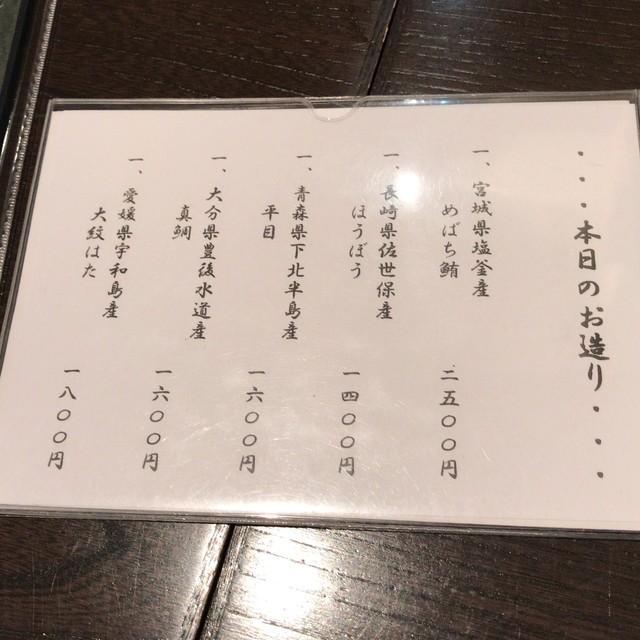 ・・・本日のお造り・・・
一、宮城県塩釜産
めばち鮪
二五〇〇円
一、長崎県佐世保産
ほうぼう
一四〇〇円
一、青森県下北半島産
平目
一六〇〇円
一、大分県豊後水道産
真鯛
一六〇〇円
一、愛媛県宇和島産
大紋はた
一八〇〇円